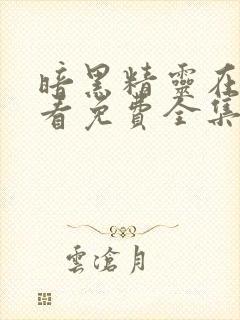 暗黑精靈在
看免費全集
雲滄月